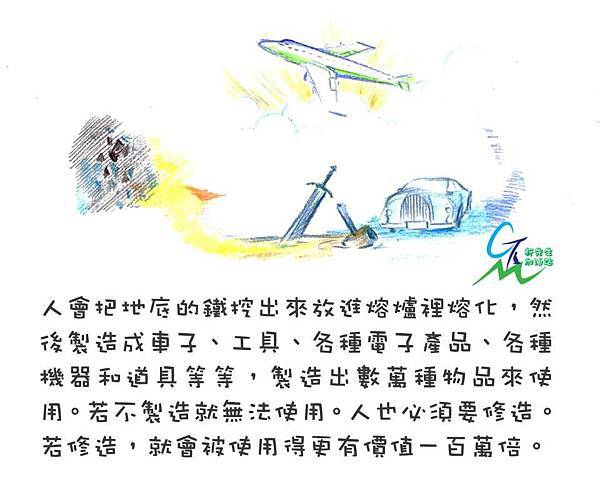 柯先生
加油站
人會把地底的鐵挖出來放進熔爐裡熔化，然
後製造成車子、工具、各種電子產品、各種
機器和道具等等，製造出數萬種物品來使
用。若不製造就無法使用。人也必須要修造。
若修造，就會被使用得更有價值一百萬倍。